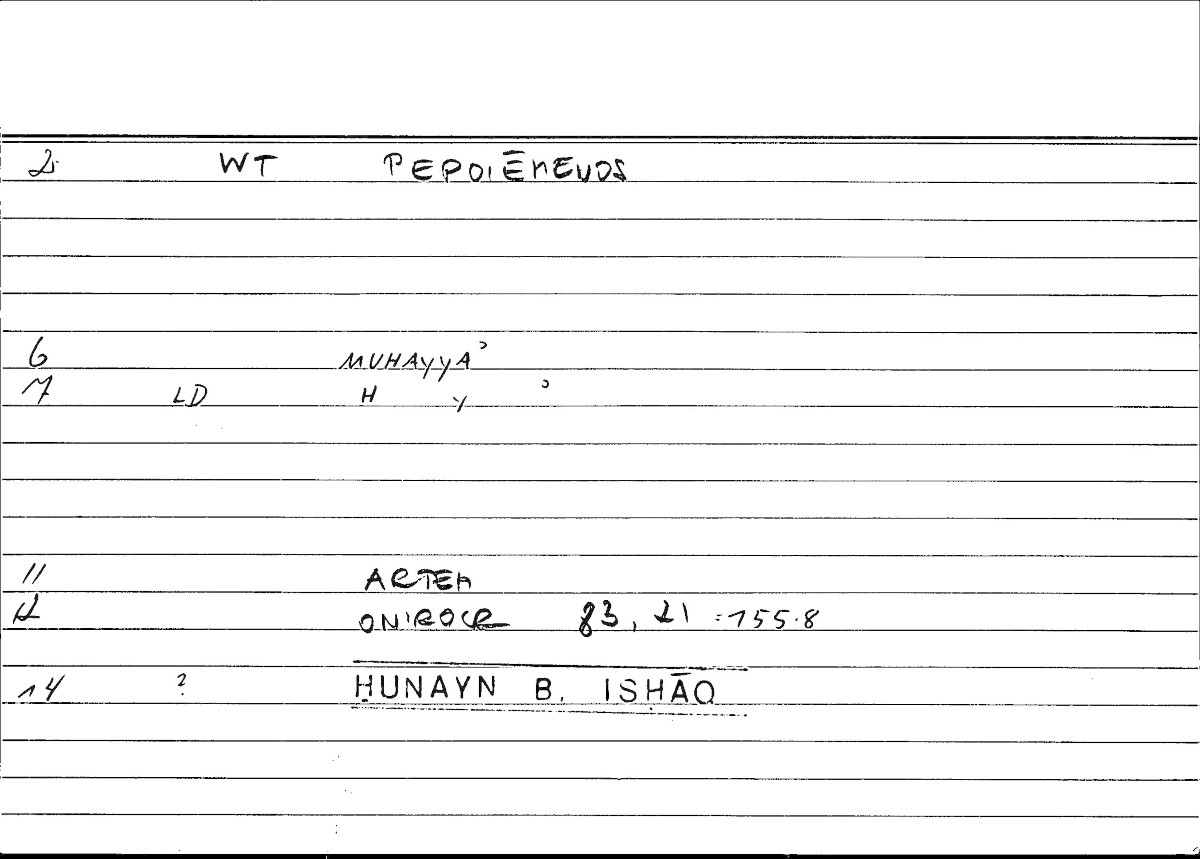 2 WT PEPOIĒMENOS
6 MUHAYYAʾ
7 LD H Y ʾ
11 ARTEM
12 ONIROCR 83, 21 = 155.8
14 ? ḤUNAYN B. ISḤĀQ